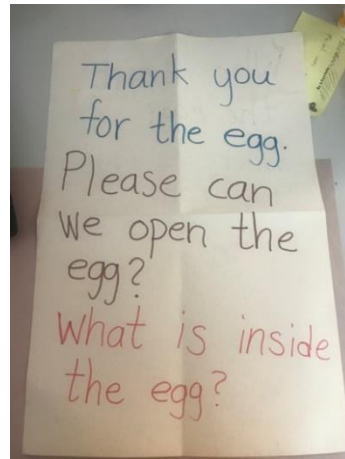 Thank you
for the egg.
Please can
we open the
egg?
What is inside
the egg?